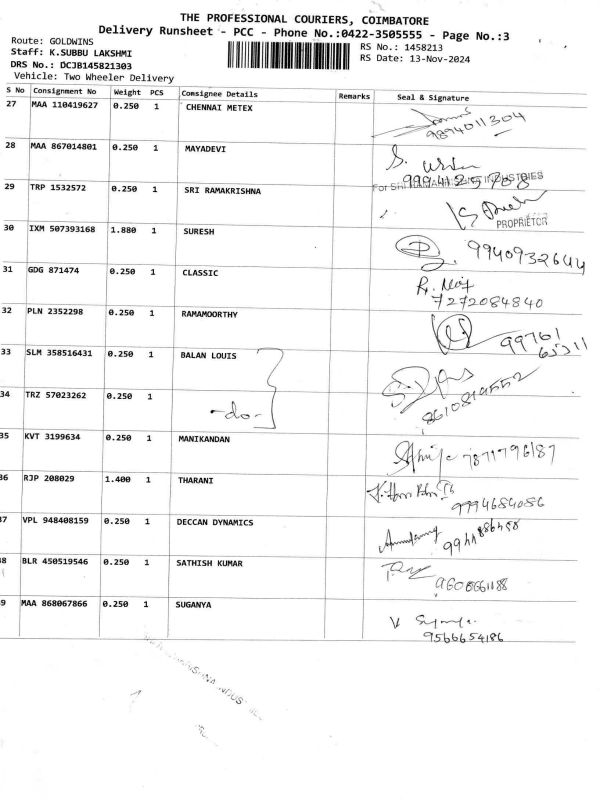 THE PROFESSIONAL COURIERS, COIMBATORE
Delivery Runsheet - PCC - Phone No.:0422-3505555 - Page No.:3
Route: GOLDWINS
RS No.: 1458213
Staff: K.SUBBU LAKSHMI
RS Date: 13-Nov-2024
DRS No.: DCJB145821303
Vehicle: Two Wheeler Delivery
S No Consignment No Weight PCS Comsignee Details Remarks Seal & Signature
27 MAA 110419627 0.250 1 CHENNAI METEX
9894011304
28 MAA 867014801 0.250 1 MAYADEVI
S.
29 TRP 1532572 0.250 1 SRI RAMAKRISHNA
PROPRIETOR
30 IXM 507393168 1.880 1 SURESH
9940932644
31 GDG 871474 0.250 1 CLASSIC
7272084840
32 PLN 2352298 0.250 1 RAMAMOORTHY
99761
33 SLM 358516431 0.250 1 BALAN LOUIS
34 TRZ 57023262 0.250 1 -do-
8610819552
35 KVT 3199634 0.250 1 MANIKANDAN
7871796187
36 RJP 208029 1.400 1 THARANI
9994684086
37 VPL 948408159 0.250 1 DECCAN DYNAMICS
38 BLR 450519546 0.250 1 SATHISH KUMAR
39 MAA 868067866 0.250 1 SUGANYA
9566654186